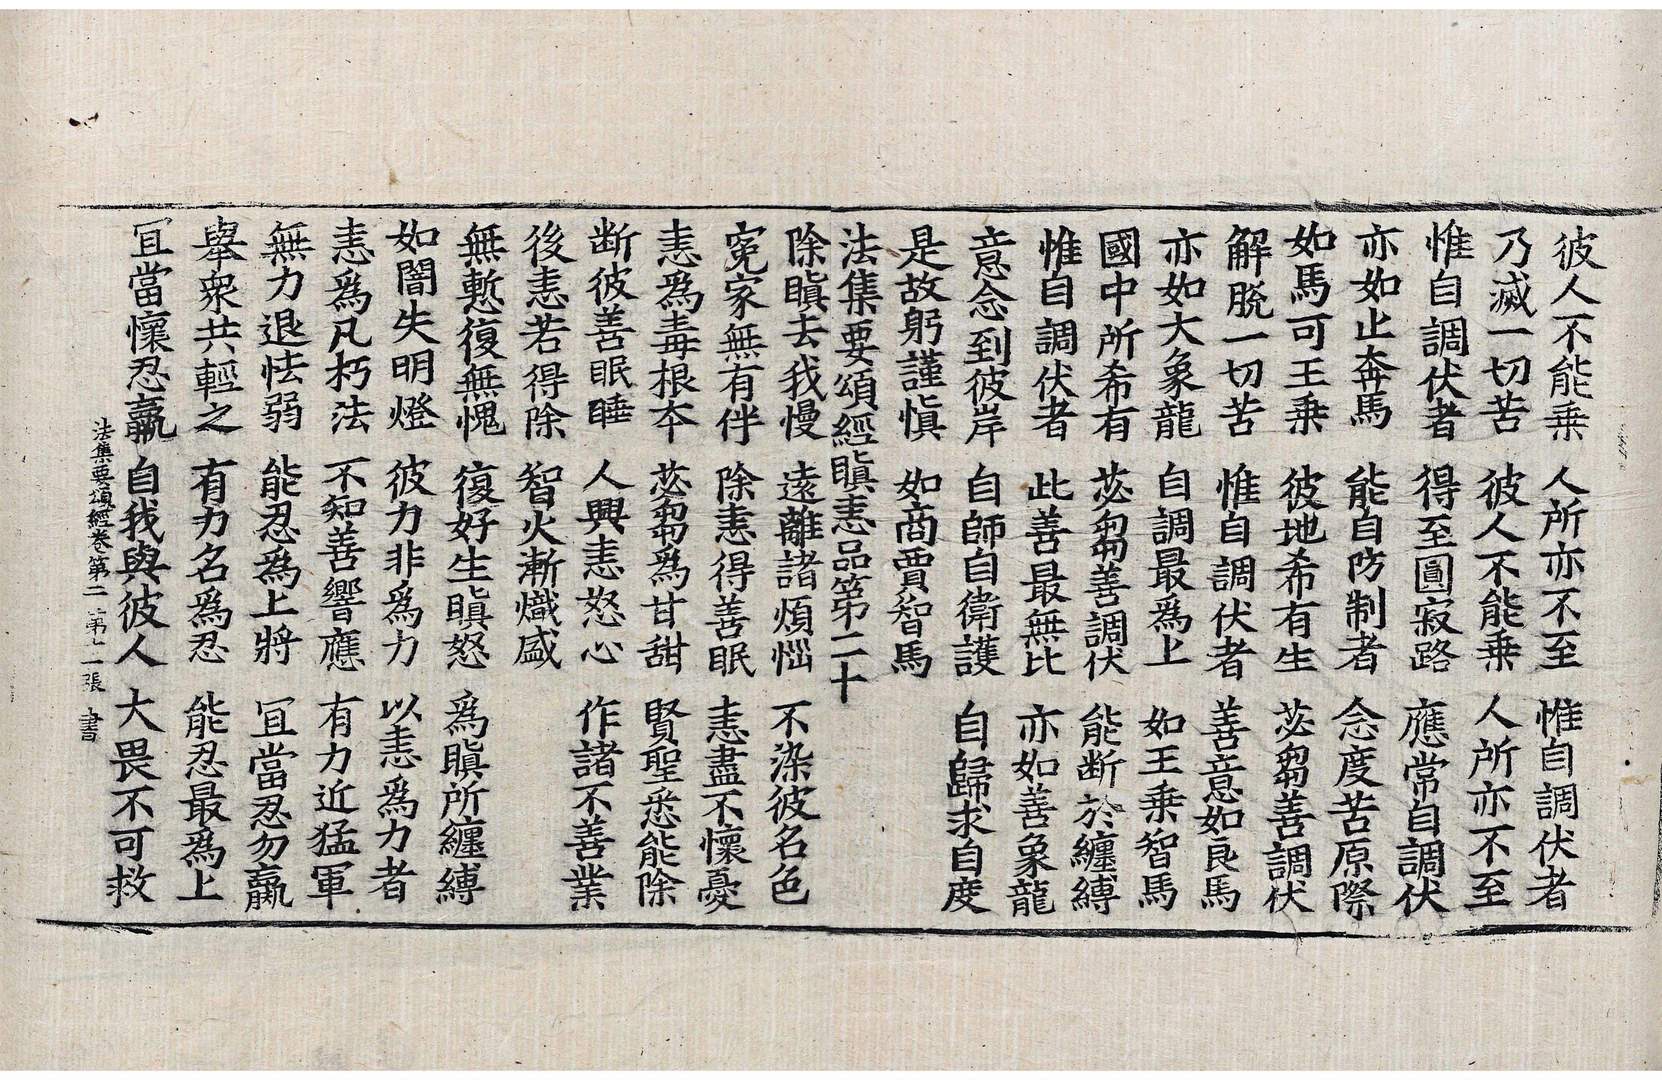 彼人不能乗 人所亦不至 惟自調伏者
乃滅一切苦 彼人不能乗 人所亦不至
惟自調伏者 得至圓寂路 應常自調伏
亦如止奔馬 能自防制者 念度苦原際
如馬可王乗 彼地希有生 苾芻善調伏
解脫一切苦 惟自調伏者 善意如良馬
亦如大象龍 自調最爲上 如王乗智馬
國中所希有 苾芻善調伏 能断於纏縛
惟自調伏者 此善最無比 亦如善象龍
意念到彼岸 自師自衛護 自歸求自度
是故躬謹慎 如商賈智馬
法集要頌經瞋恚品第二十
除瞋去我慢 遠離諸煩惱 不染彼名色
寃家無有伴 除恚得善眠 恚盡不懷憂
恚爲毒根夲 苾芻爲甘甜 賢聖悉能除
断彼善眠睡 人興恚怒心 作諸不善業
後恚若得除 智火漸熾盛
無慙復無愧 復好生瞋怒 爲瞋所纏縛
如闇失明燈 彼力非爲力 以恚爲力者
恚爲凡朽法 不知善響應 有力近猛軍
無力退怯弱 能忍爲上將 冝當忍勿羸
舉衆共輕之 有力名爲忍 能忍最爲上
冝當懷忍羸 自我與彼人 大畏不可救
法集要頌經卷第二 第十一張 書